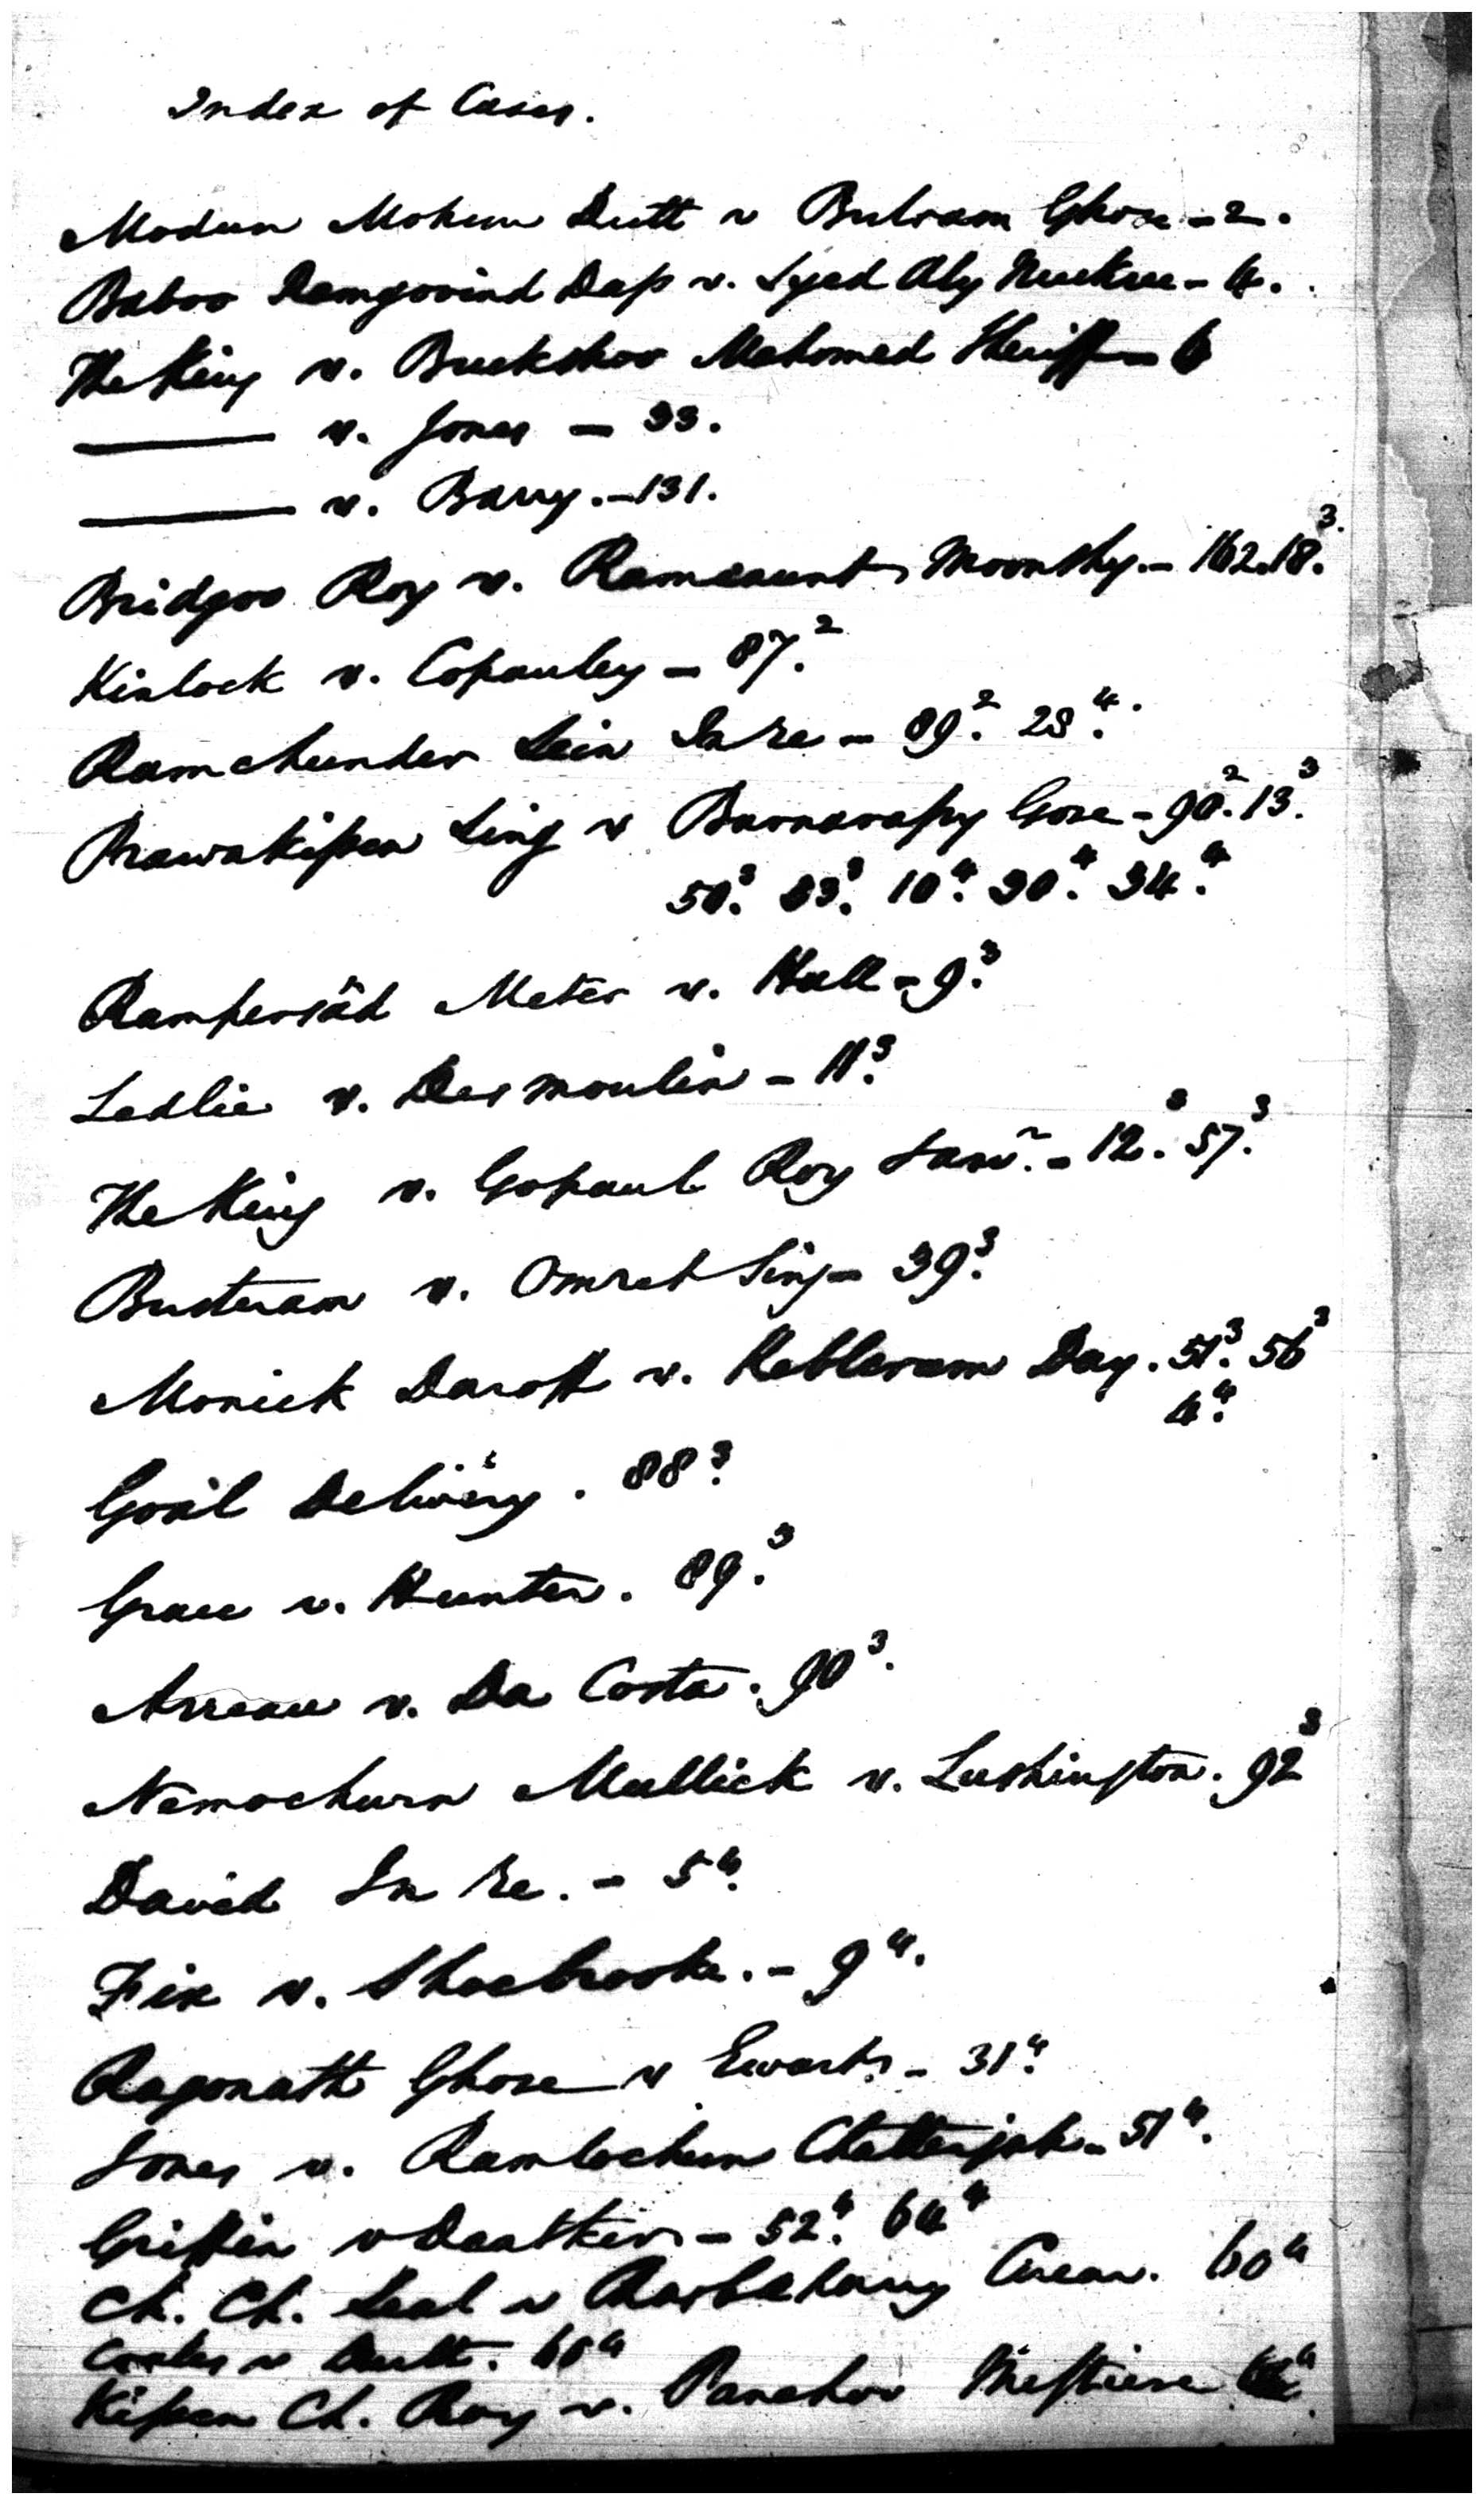 Index of Cases.
Modun Mohun Dutt v Bulram Ghose - 2.
Baboo Ramgovind Dass v. Syed Aly - 4.
The King v. Buckshoo Mahomed Sheriff - 6
—— v. Jones - 33.
—— v. Barry. - 131.
Bridgoo Roy v. Ramcaunt Moonshy. - 162. 18.³
Kinlock v. Copauley - 87.²
Ramchunder Sein In re - 89.² 28.⁴
Ling v Gose - 90.² 13.³
50.³ 83.³ 10.⁴ 30.⁴ 34.⁴
Rampersad Meter v. Hall - 9.³
Ledlie v. Desmoulin - 11.³
The King v. Gopaul Roy - 12.³ 57.³
Busteram v. Omret Sing - 39.³
Monick v. Day. 51.³ 56³
4.⁴
Goal Delivery. 88.³
Grace v. Hunter. 89.³
v. Da Costa. 90³.
Nemochurn Mullick v. Lushington. 92³
David In re. - 5.⁴
Fix v. Shoebrooke. - 9⁴.
Ragonath Ghose v Ewart - 31.⁴
Jones v. Ramlochun - 51⁴.
Griffin v - 52.⁴ 64⁴
Ch. Ch. Seal v 60⁴
v Dutt.
Kissen Ch. Roy v. Panchoo